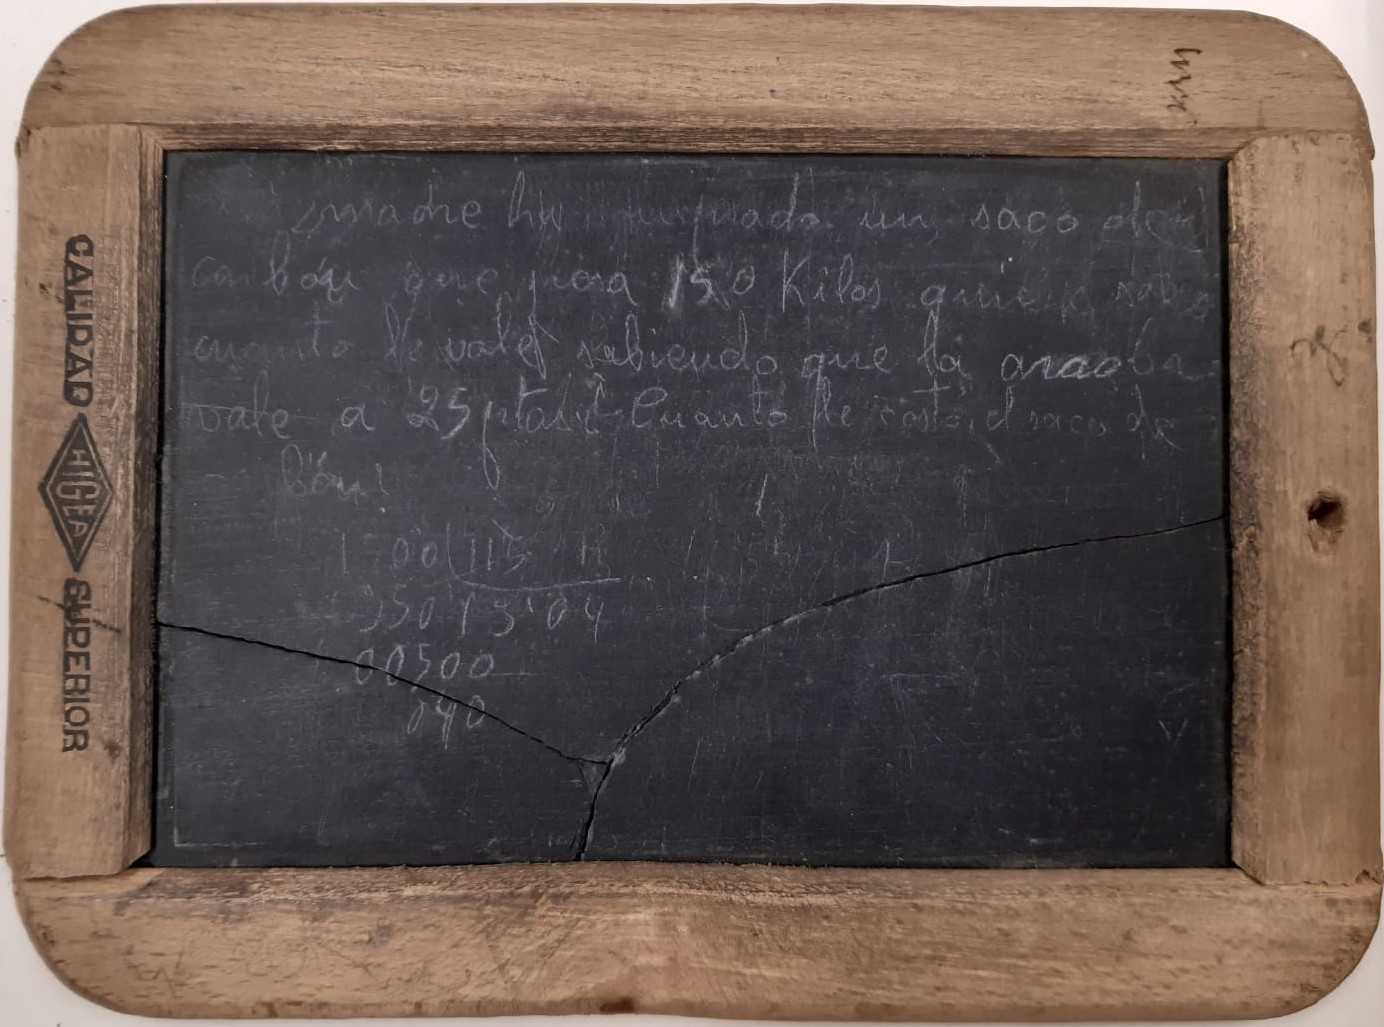 madre ha un saco de
carbón que pesa 150 Kilos quiere saber
cuanto le vale sabiendo que la arroba
vale a 25 ptas Cuanto le costó el saco de
bón
1 00 115
350 13'04
00500
040
CALIDAD HIGEA SUPERIOR